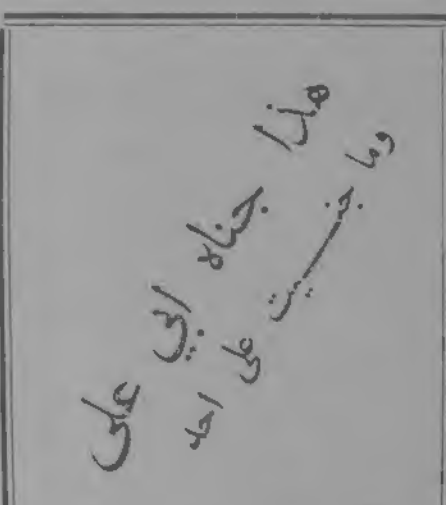 هذا جناه ابي علي
وما جنيت على احد